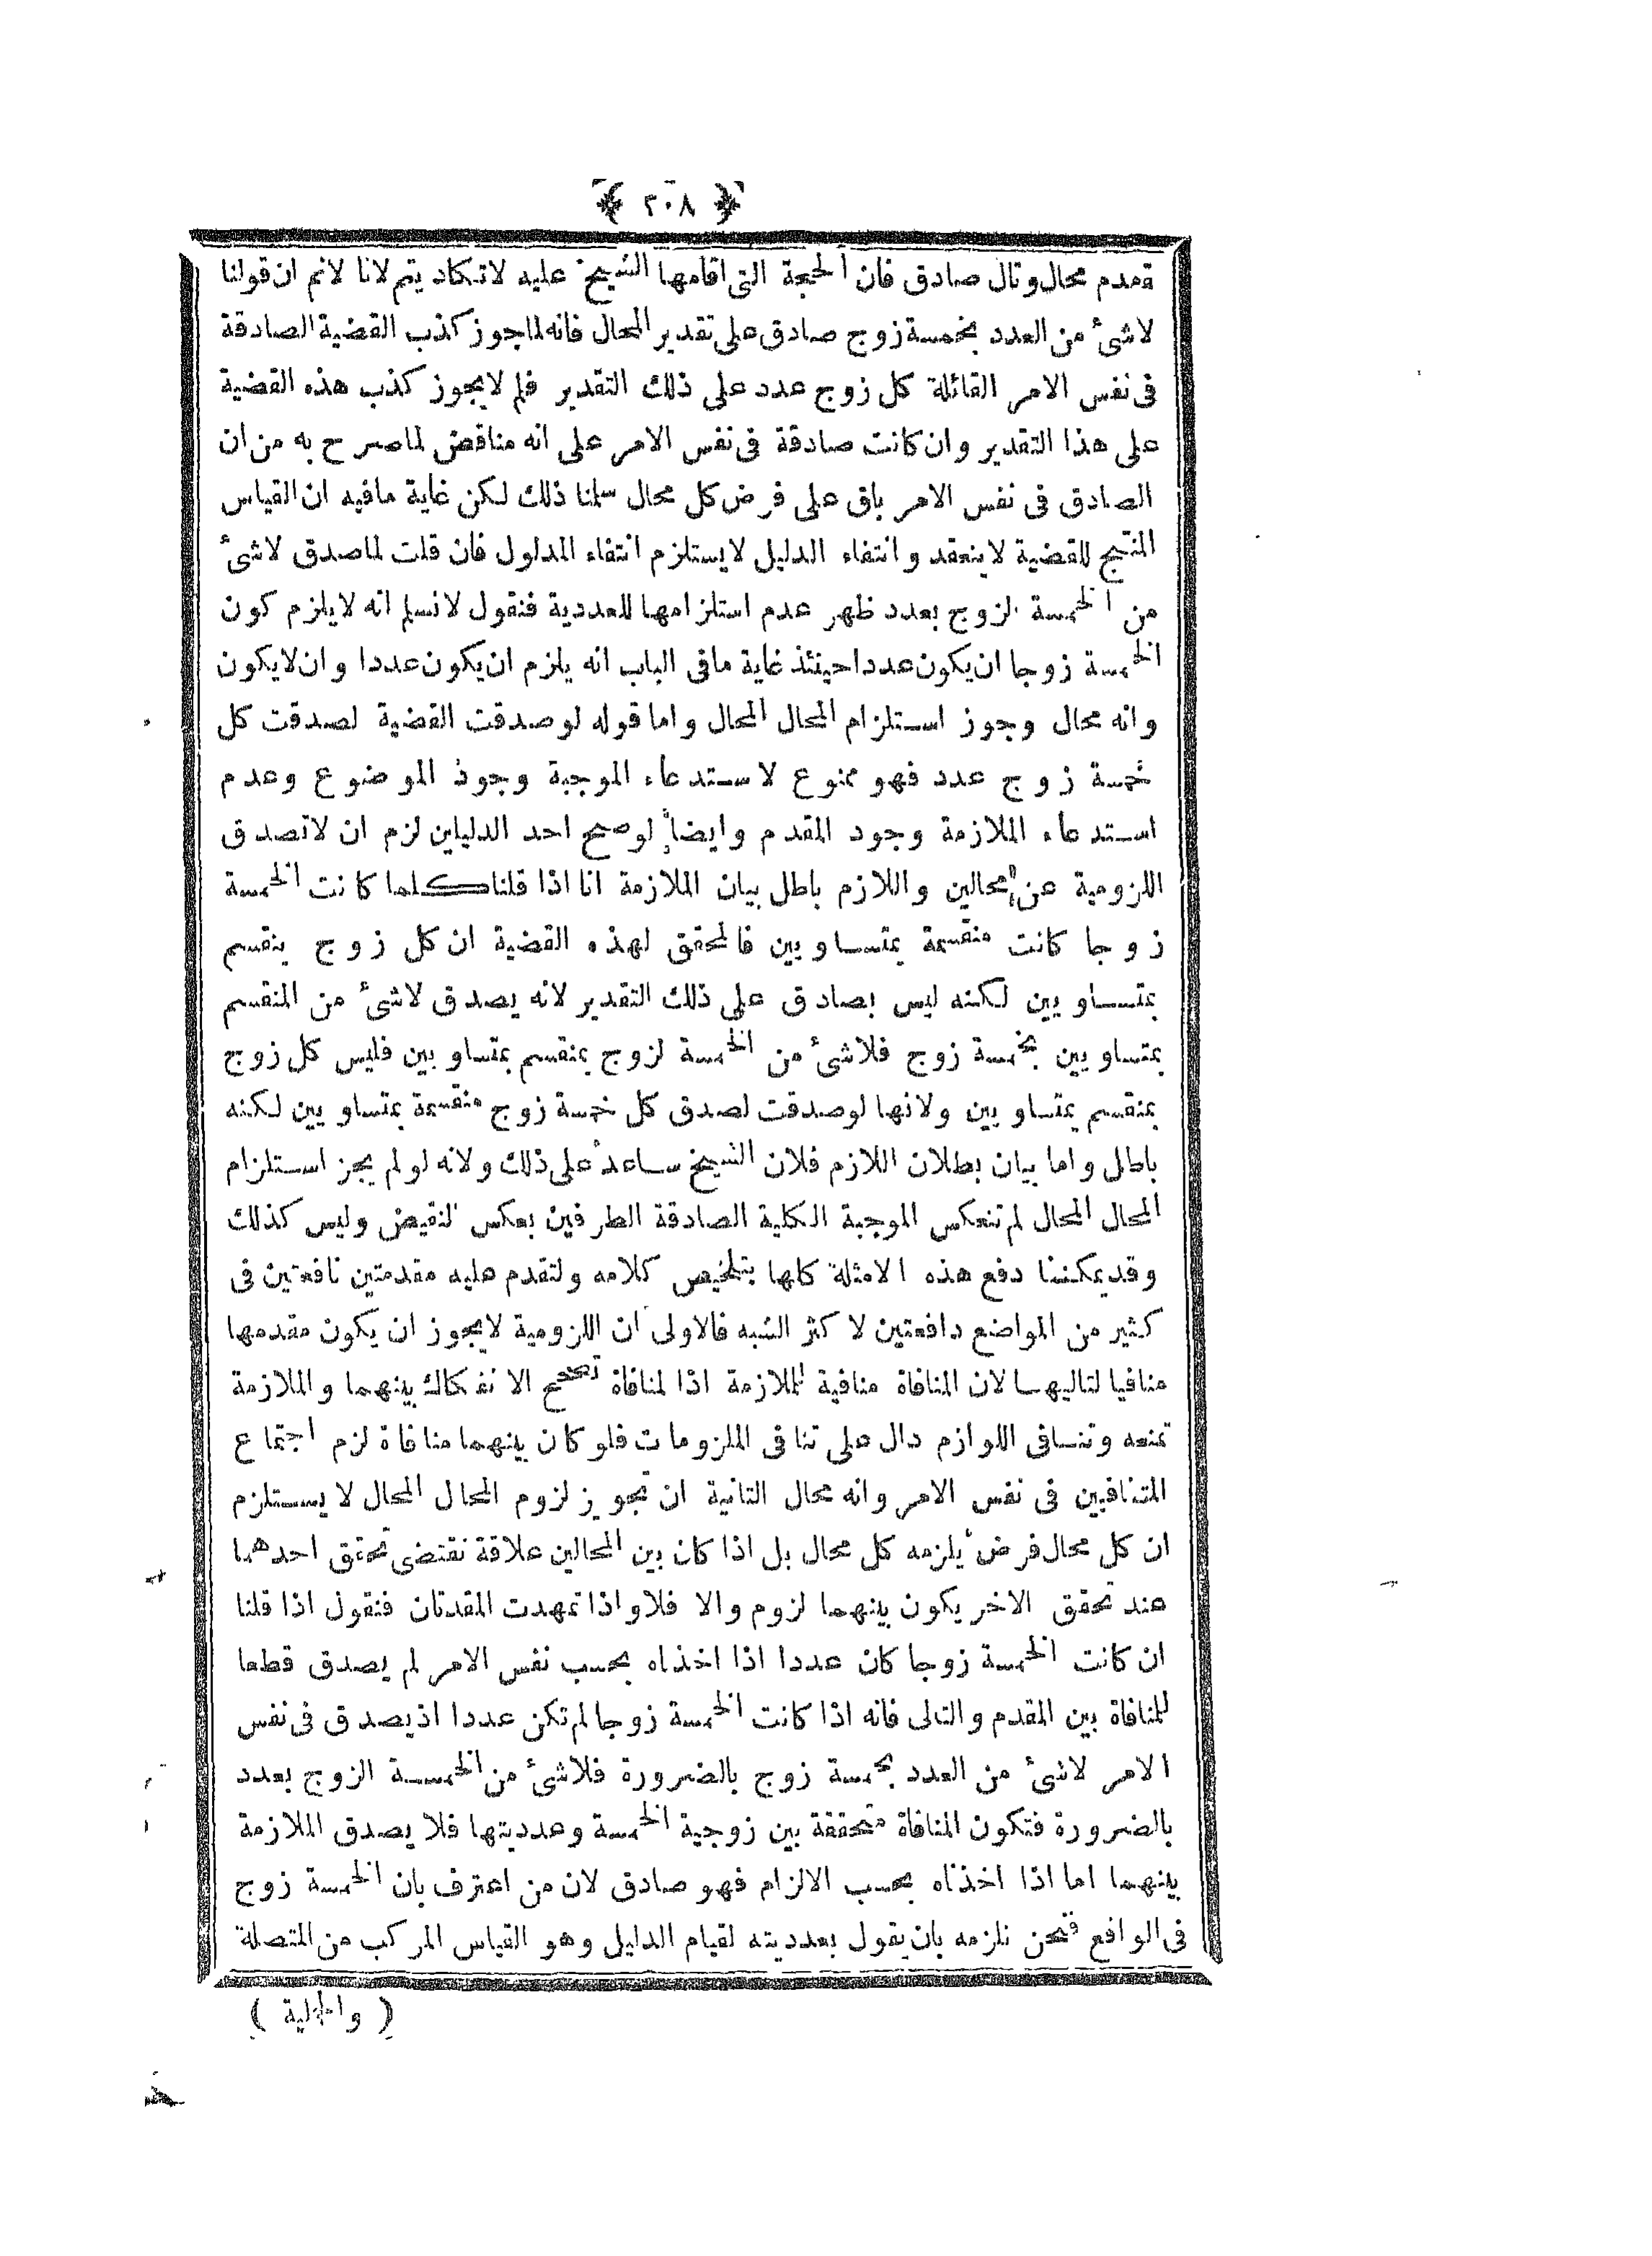 ﴿ ٢٠٨ ﴾
مقدم محال وتال صادق فان الحجة التى اقامها الشيخ عليه لاتكاد يتم لانا لانم ان قولنا
لاشئ من العدد بخمسة زوج صادق على تقدير المحال فانه لماجوز كذب القضية الصادقة
فى نفس الامر القائلة كل زوج عدد على ذلك التقدير فلم لايجوز كذب هذه القضية
على هذا التقدير وان كانت صادقة فى نفس الامر على انه مناقض لماصرح به من ان
الصادق فى نفس الامر باق على فرض كل محال سلمنا ذلك لكن غاية مافيه ان القياس
المنتج للقضية لاينعقد وانتفاء الدليل لايستلزم انتفاء المدلول فان قلت لماصدق لاشئ
من الخمسة الزوج بعدد ظهر عدم استلزامها للعددية فنقول لانسلم انه لايلزم كون
الخمسة زوجا ان يكون عددا حينئذ غاية مافى الباب انه يلزم ان يكون عددا وان لايكون
وانه محال وجوز استلزام المحال المحال واما قوله لوصدقت القضية لصدقت كل
خمسة زوج عدد فهو ممنوع لاستدعاء الموجبة وجود الموضوع وعدم
استدعاء الملازمة وجود المقدم وايضا لوصح احد الدليلين لزم ان لاتصدق
اللزومية عن محالين واللازم باطل بيان الملازمة انا اذا قلنا كلما كانت الخمسة
زوجا كانت منقسمة بمتساويين فالمحقق لهذه القضية ان كل زوج ينقسم
بمتساويين لكنه ليس بصادق على ذلك التقدير لانه يصدق لاشئ من المنقسم
بمتساويين بخمسة زوج فلاشئ من الخمسة لزوج بمنقسم بمتساويين فليس كل زوج
بمنقسم بمتساويين ولانها لوصدقت لصدق كل خمسة زوج منقسمة بمتساويين لكنه
باطل واما بيان بطلان اللازم فلان الشيخ ساعد على ذلك ولانه لولم يجز استلزام
المحال المحال لم تنعكس الموجبة الكلية الصادقة الطرفين بعكس النقيض وليس كذلك
وقديمكننا دفع هذه الامثلة كلها بتلخيص كلامه ولنقدم عليه مقدمتين نافعتين فى
كثير من المواضع دافعتين لاكثر الشبه فالاولى ان اللزومية لايجوز ان يكون مقدمها
منافيا لتاليها لان المنافاة منافية للملازمة اذا لمنافاة تصحح الانفكاك بينهما والملازمة
تمنعه وتنافى اللوازم دال على تنافى الملزومات فلوكان بينهما منافاة لزم اجتماع
المتنافيين فى نفس الامر وانه محال الثانية ان تجويز لزوم المحال المحال لايستلزم
ان كل محال فرض يلزمه كل محال بل اذا كان بين المحالين علاقة تقتضى تحقق احدهما
عند تحقق الاخر يكون بينهما لزوم والا فلا واذا تمهدت المقدمتان فنقول اذا قلنا
ان كانت الخمسة زوجا كان عددا اذا اخذناه بحسب نفس الامر لم يصدق قطعا
للمنافاة بين المقدم والتالى فانه اذا كانت الخمسة زوجا لم تكن عددا اذيصدق فى نفس
الامر لاشئ من العدد بخمسة زوج بالضرورة فلاشئ من الخمسة الزوج بعدد
بالضرورة فتكون المنافاة متحققة بين زوجية الخمسة وعدديتها فلا يصدق الملازمة
بينهما اما اذا اخذناه بحسب الالزام فهو صادق لان من اعترف بان الخمسة زوج
فى الواقع فنحن نلزمه بان يقول بعدديته لقيام الدليل وهو القياس المركب من المتصلة
( والحملية )